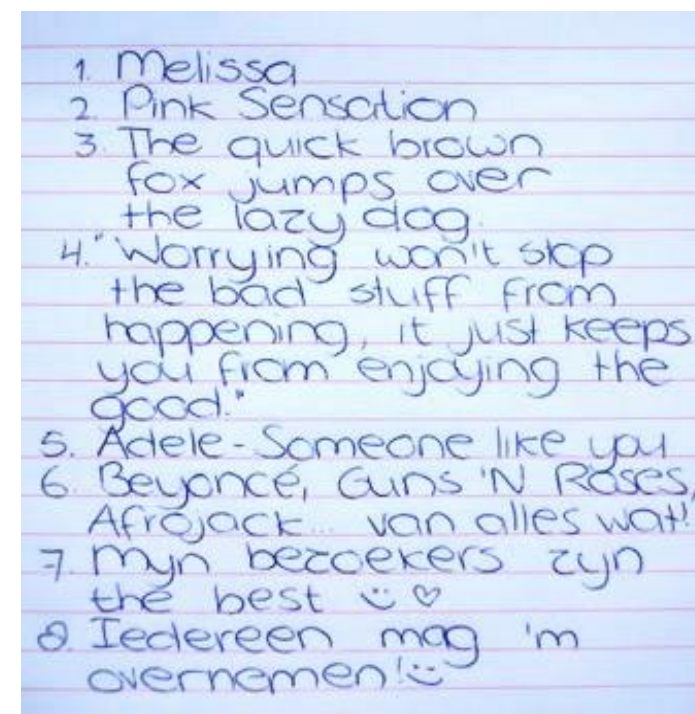 1. Melissa
2. Pink Sensation
3. The quick brown
fox jumps over
the lazy dog.
4. "Worrying won't stop
the bad stuff from
happening, it just keeps
you from enjoying the
good."
5. Adele - Someone like you
6. Beyoncé, Guns 'N Roses,
Afrojack... van alles wat!
7. Myn bezoekers zyn
the best :) ♡
8. Iedereen mag 'm
overnemen! :)